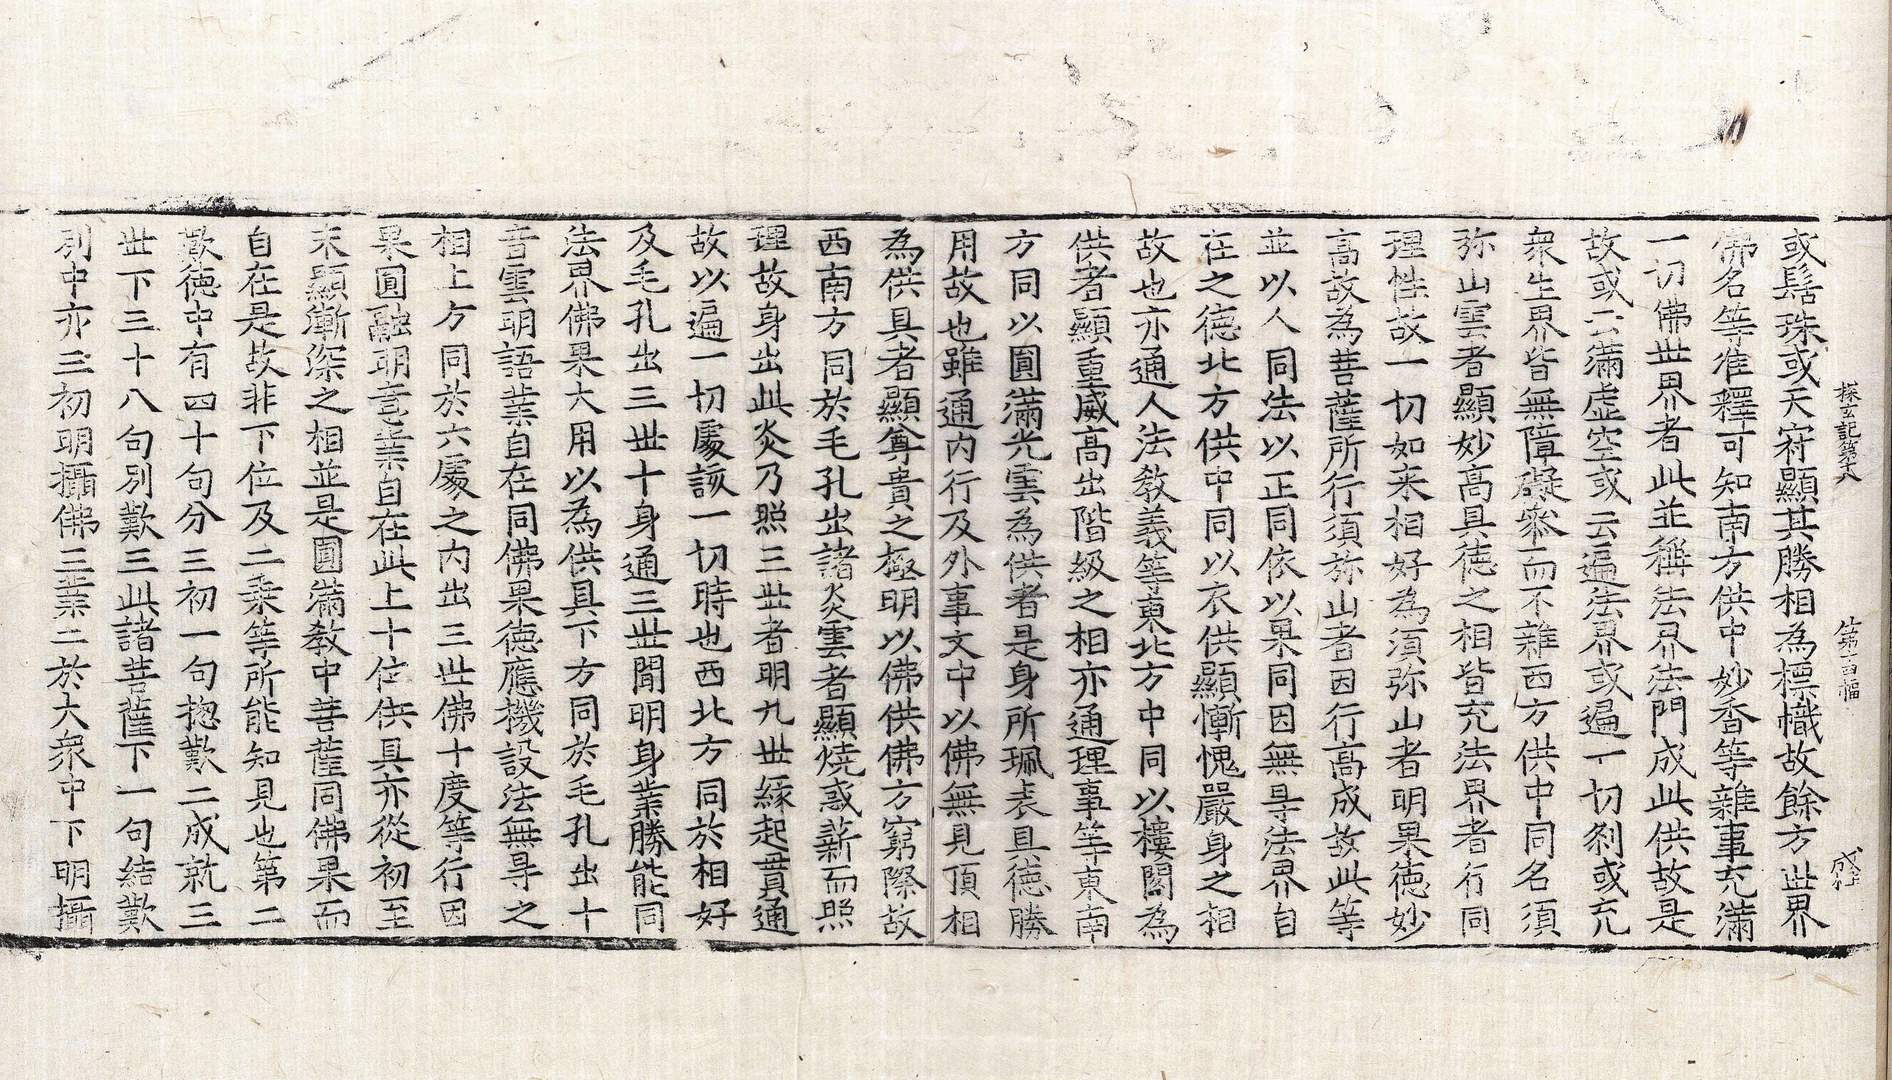 探玄記第十八 第一百幅 成住
或髻珠或天府顯其勝相為標幟故餘方世界
佛名等准釋可知南方供中妙香等雜事充滿
一切佛世界者此並稱法界法門成此供故是
故或云滿虛空或云遍法界或遍一切剎或充
衆生界皆無障礙叅而不雜西方供中同名須
弥山雲者顯妙高具德之相皆充法界者行同
理性故一切如来相好為須弥山者明果德妙
高故為菩薩所行須弥山者因行高成故此等
並以人同法以正同依以果同因無㝵法界自
在之德北方供中同以衣供顯慚愧嚴身之相
故也亦通人法教義等東北方中同以樓閣為
供者顯重威高出階級之相亦通理事等東南
方同以圓滿光雲為供者是身所珮表具德勝
用故也雖通內行及外事文中以佛無見頂相
為供具者顯尊貴之極明以佛供佛方窮際故
西南方同於毛孔出諸炎雲者顯燒惑薪而照
理故身出此炎乃照三世者明九世緣起貫通
故以遍一切處該一切時也西北方同於相好
及毛孔出三世十身通三世間明身業勝能同
法界佛果大用以為供具下方同於毛孔出十
音雲明語業自在同佛果德應機設法無㝵之
相上方同於六處之內出三世佛十度等行因
果圓融明意業自在此上十位供具亦從初至
末顯漸深之相並是圓滿教中菩薩同佛果而
自在是故非下位及二乗等所能知見也第二
歎德中有四十句分三初一句揔歎二成就三
世下三十八句別歎三此諸菩薩下一句結歎
別中亦三初明攝佛三業二於大衆中下明攝